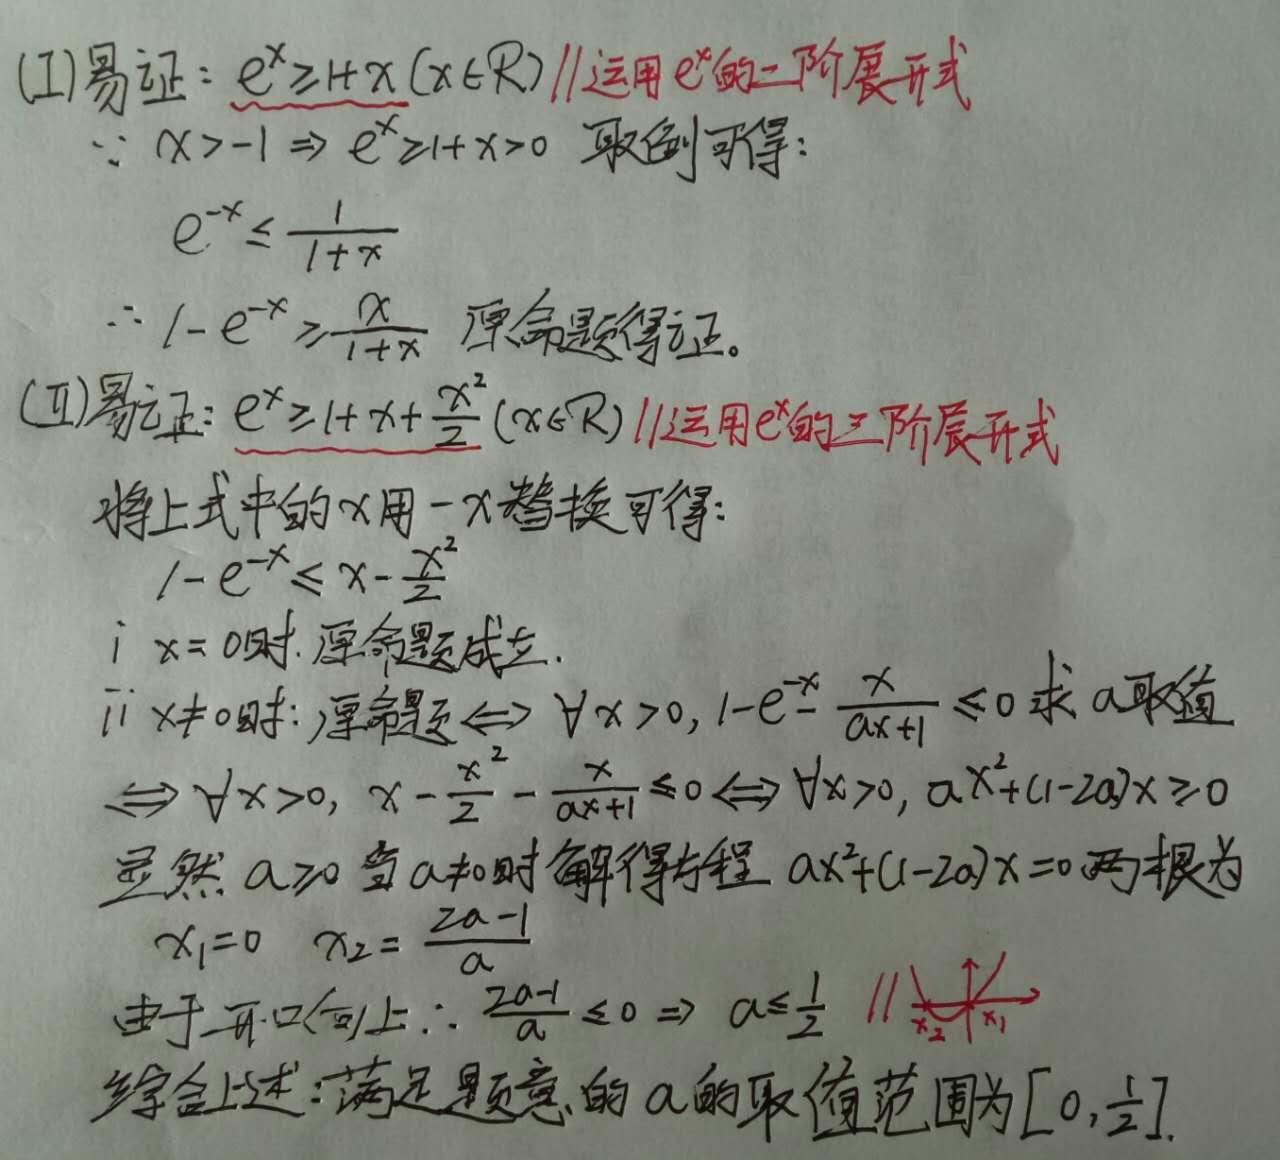 (I)易证: e^x≥1+x(x∈R)//运用e^x的二阶展开式
∵ x>-1 ⇒ e^x≥1+x>0 取倒可得:
e^{-x}≤\frac{1}{1+x}
∴ 1-e^{-x}≥\frac{x}{1+x} 原命题得证。
(II)易证: e^x≥1+x+\frac{x^2}{2}(x∈R)//运用e^x的三阶展开式
将上式中的x用-x替换可得:
1-e^{-x}≤x-\frac{x^2}{2}
i x=0时.原命题成立.
ii x≠0时:原命题⇔ ∀x>0, 1-e^{-x}-\frac{x}{ax+1}≤0求a取值
⇔∀x>0, x-\frac{x^2}{2}-\frac{x}{ax+1}≤0⇔∀x>0, ax^2+(1-2a)x≥0
显然 a≥0 当a≠0时解得方程 ax^2+(1-2a)x=0两根为
x_1=0 x_2=\frac{2a-1}{a}
由于开口向上∴ \frac{2a-1}{a}≤0 ⇒ a≤\frac{1}{2} // x_2 x_1
综合上述:满足题意的a的取值范围为[0,\frac{1}{2}].